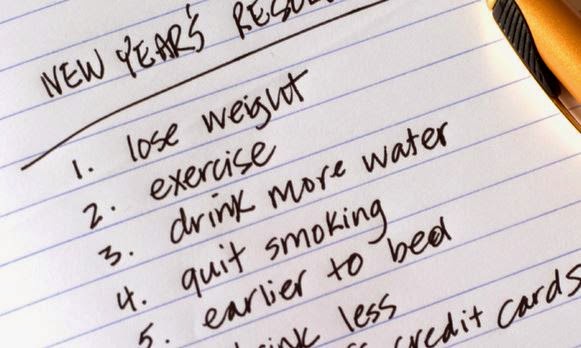 NEW YEAR'S
1. lose weight
2. exercise
3. drink more water
4. quit smoking
5. earlier to bed
less
credit cards